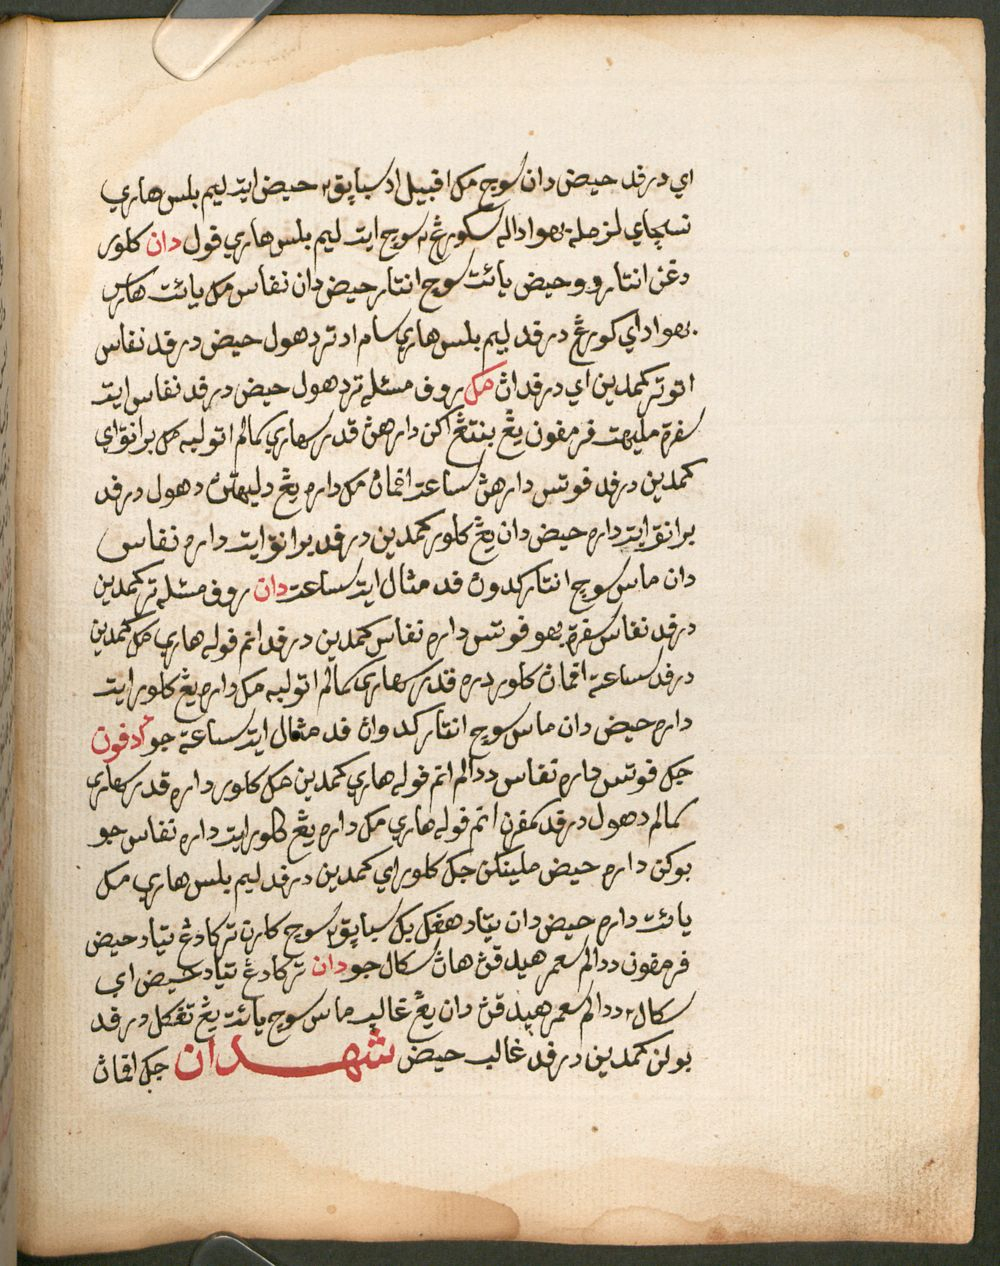 اي درفد حيض دان سوچ مک اڤبيل اد سباڽق٢ حيض ايت ليم بلس هاري
نسچاي لزمله بهوا اداله سکورڠ٢ سوچ ايت ليم بلس هاري قول دان کلور
دڠن انتار دو حيض يائت سوچ انتار حيض دان نفاس مک يائت هارس
بهوا اداي کورڠ درفد ليم بلس هاري سام اد تردهول حيض درفد نفاس
اتو ترکمدين اي درفدان مک روف مسئله تردهول حيض درفد نفاس ايت
سفرة مليهت فرمفون يڠ بنتڠ اکن دارهن قدر سهاري کمالم اتو لبه مک برانق اي
کمدين درفد فوتس دارهن ساعة اتمان مک داره يڠ دليهتن دهول درفد
برانق ايت داره حيض دان يڠ کلور کمدين درفد برانق ايت داره نفاس
دان ماس سوچ انتار کدوان فد مثال ايت ساعت دان روف مسئله ترکمدين
درفد نفاس سفرة بهو فوتس داره نفاس کمدين درفد انم فوله هاري مک کمدين
درفد ساعة اتمان کلور داره قدر سهاري کمالم اتو لبه مک داره يڠ کلور ايت
داره حيض دان ماس سوچ انتار کدوان فد مثال ايت ساعة جو ادفون
جک فوتس داره نفاس ددالم انم فوله هاري کمدين مک کلور داره قدر سهاري
کمالم دهول درفد کمفرن انم فوله هاري مک داره يڠ کلور ايت داره نفاس جو
بوکن داره حيض ملينکن جک کلور اي کمدين درفد ليم بلس هاري مک
يائت داره حيض دان تياد هڠݢ بݢ سباڽق٢ سوچ کارن ترکادڠ تياد حيض
فرمفون ددالم سعمر هيدفن هاڽ سکال جو دان ترکادڠ تياد حيض اي
سکال٢ ددالم سعمر هيدفن دان يڠ غالب ماس سوچ يائت يڠ تڠݢل درفد
بولن کمدين درفد غالب حيض شهدان جک اتمان